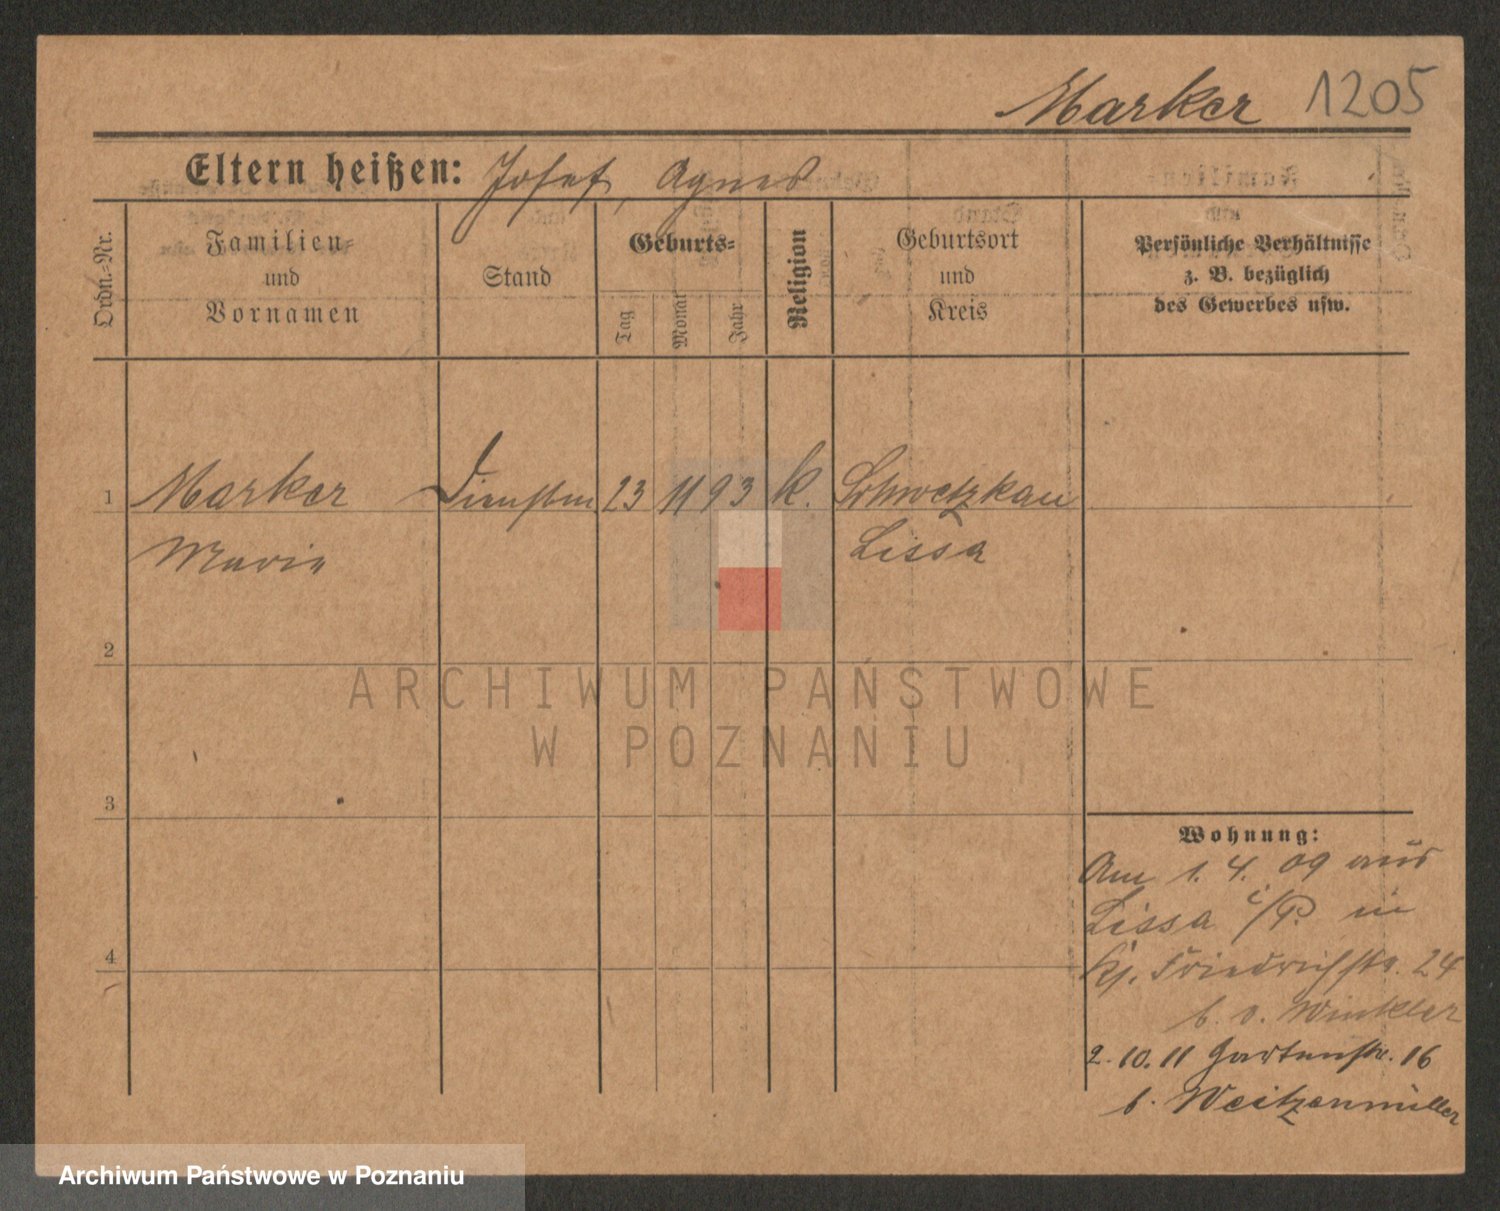 Marker 1205
Eltern heißen: Josef, Agnes
Ordn.-Nr.
Familien-
und
Vornamen
Stand
Geburts-
Tag
Monat
Jahr
Religion
Geburtsort
und
Kreis
Persönliche Verhältnisse
z. B. bezüglich
des Gewerbes usw.
1 Marker Dienstm 23 11 93 k. Schwetzkau
Maria Lissa
2
3
4
Wohnung:
Am 1. 4. 09 aus
Lissa i/P. in
Friedrichstr. 24
b. v. Winkler
2. 10. 11 Gartenstr. 16
b. Weitzenmüller
ARCHIWUM PAŃSTWOWE
W POZNANIU
Archiwum Państwowe w Poznaniu